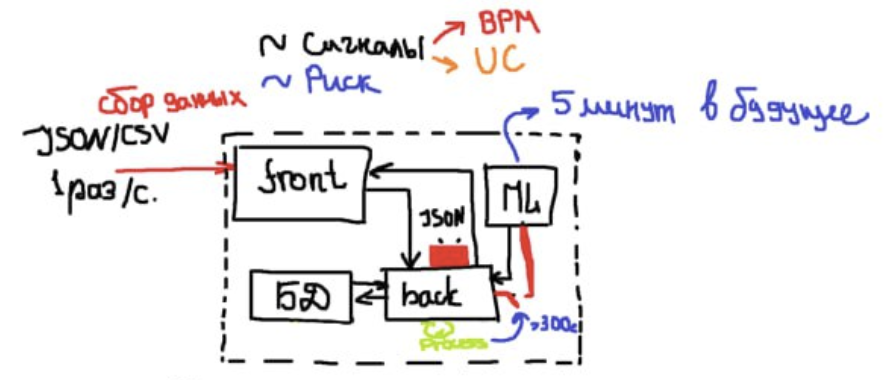 ~ Сигналы
BPM
UC
~ Риск
сбор данных
JSON/CSV
1 раз/с.
5 минут в будущее
front
ML
JSON
БД
back
Process
>300с